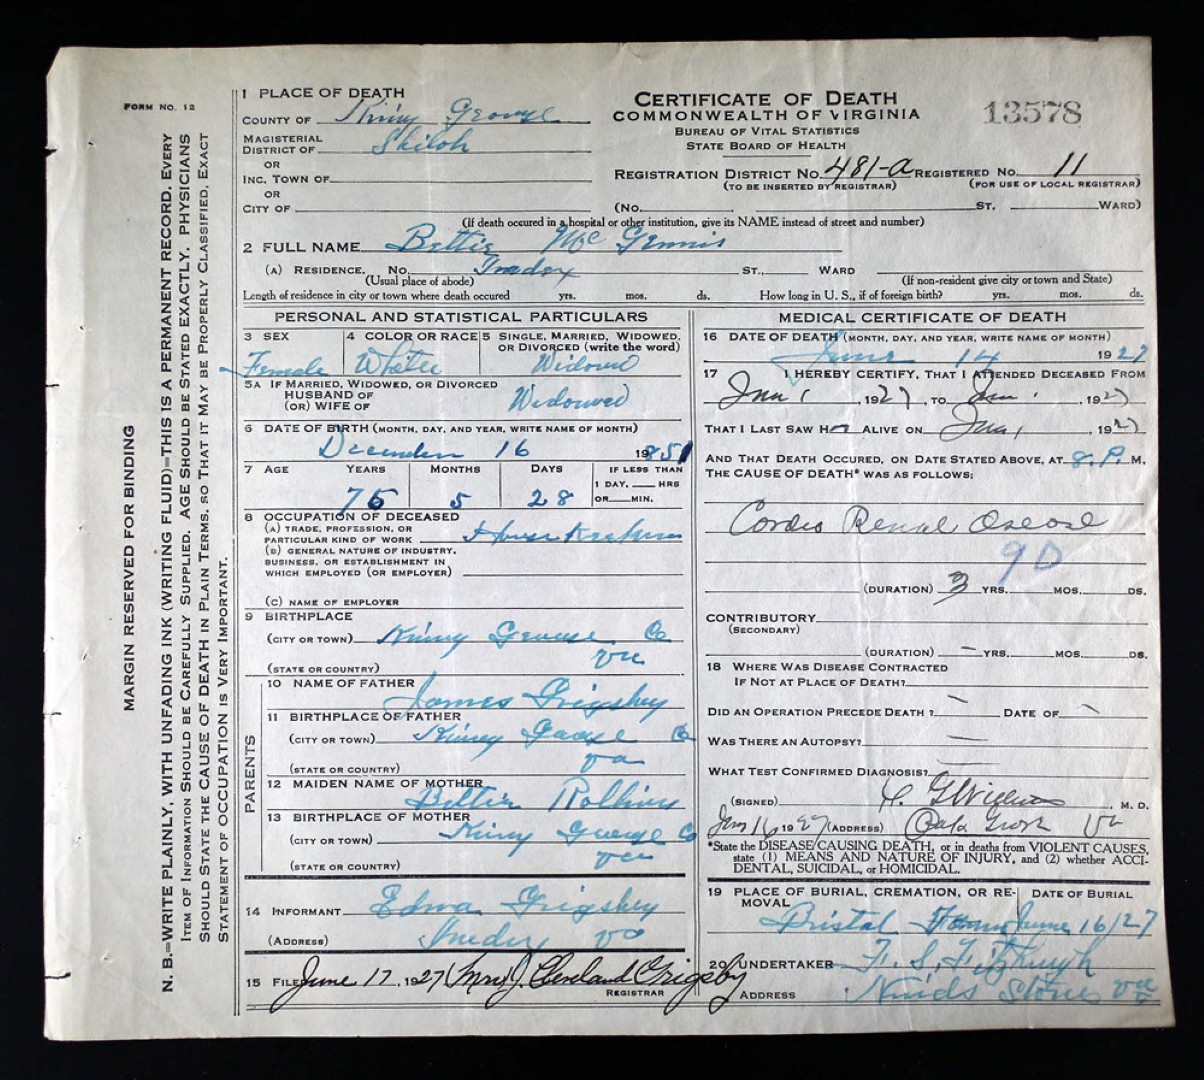 FORM NO. 12
MARGIN RESERVED FOR BINDING
N. B.—WRITE PLAINLY, WITH UNFADING INK (WRITING FLUID)—THIS IS A PERMANENT RECORD. EVERY
ITEM OF INFORMATION SHOULD BE CAREFULLY SUPPLIED. AGE SHOULD BE STATED EXACTLY. PHYSICIANS
SHOULD STATE THE CAUSE OF DEATH IN PLAIN TERMS, SO THAT IT MAY BE PROPERLY CLASSIFIED. EXACT
STATEMENT OF OCCUPATION IS VERY IMPORTANT.
1 PLACE OF DEATH
COUNTY OF King George
MAGISTERIAL
DISTRICT OF Shiloh
OR
INC. TOWN OF
OR
CITY OF
CERTIFICATE OF DEATH
COMMONWEALTH OF VIRGINIA
BUREAU OF VITAL STATISTICS
STATE BOARD OF HEALTH
13578
REGISTRATION DISTRICT NO. 481-a REGISTERED NO. 11
(TO BE INSERTED BY REGISTRAR) (FOR USE OF LOCAL REGISTRAR)
(NO. ST. WARD)
(If death occured in a hospital or other institution, give its NAME instead of street and number)
2 FULL NAME Bettie Mc Gennis
(A) RESIDENCE. NO. ST., WARD
(Usual place of abode) (If non-resident give city or town and State)
Length of residence in city or town where death occured yrs. mos. ds. How long in U. S., if of foreign birth? yrs. mos. ds.
PERSONAL AND STATISTICAL PARTICULARS
3 SEX 4 COLOR OR RACE 5 SINGLE, MARRIED, WIDOWED, OR DIVORCED (write the word)
Female White Widowed
5A IF MARRIED, WIDOWED, OR DIVORCED
HUSBAND OF
(OR) WIFE OF Widowed
6 DATE OF BIRTH (MONTH, DAY, AND YEAR, WRITE NAME OF MONTH)
December 16 1851
7 AGE YEARS MONTHS DAYS IF LESS THAN
1 DAY, HRS
OR MIN.
75 5 28
8 OCCUPATION OF DECEASED
(A) TRADE, PROFESSION, OR
PARTICULAR KIND OF WORK
(B) GENERAL NATURE OF INDUSTRY,
BUSINESS, OR ESTABLISHMENT IN
WHICH EMPLOYED (OR EMPLOYER)
(C) NAME OF EMPLOYER
9 BIRTHPLACE
(CITY OR TOWN) King George Co
(STATE OR COUNTRY) va
PARENTS
10 NAME OF FATHER James Grigsby
11 BIRTHPLACE OF FATHER
(CITY OR TOWN) King George Co
(STATE OR COUNTRY) va
12 MAIDEN NAME OF MOTHER Bettie Rollins
13 BIRTHPLACE OF MOTHER
(CITY OR TOWN) King George Co
(STATE OR COUNTRY) va
14 INFORMANT Grigsby
(ADDRESS) va
15 FILED June 17, 1927 Mrs J. Cleveland Grigsby
REGISTRAR
MEDICAL CERTIFICATE OF DEATH
16 DATE OF DEATH (MONTH, DAY, AND YEAR, WRITE NAME OF MONTH)
June 14 1927
17 I HEREBY CERTIFY, THAT I ATTENDED DECEASED FROM
1, 1927, TO 1927
THAT I LAST SAW H ALIVE ON 1, 1927
AND THAT DEATH OCCURRED, ON DATE STATED ABOVE, AT 8. P. M.
THE CAUSE OF DEATH* WAS AS FOLLOWS:
Cardio Renal Disease
90
(DURATION) 3 YRS. MOS. DS.
CONTRIBUTORY
(SECONDARY)
(DURATION) — YRS. MOS. DS.
18 WHERE WAS DISEASE CONTRACTED
IF NOT AT PLACE OF DEATH?
DID AN OPERATION PRECEDE DEATH? DATE OF
WAS THERE AN AUTOPSY?
WHAT TEST CONFIRMED DIAGNOSIS?
(SIGNED) M. D.
16 1927 (ADDRESS) Oak Grove Va
*State the DISEASE CAUSING DEATH, or in deaths from VIOLENT CAUSES,
state (1) MEANS AND NATURE OF INJURY, and (2) whether ACCI-
DENTAL, SUICIDAL, or HOMICIDAL.
19 PLACE OF BURIAL, CREMATION, OR RE-
MOVAL DATE OF BURIAL
June 16/27
20 UNDERTAKER F. S. Fitzhugh
ADDRESS Va